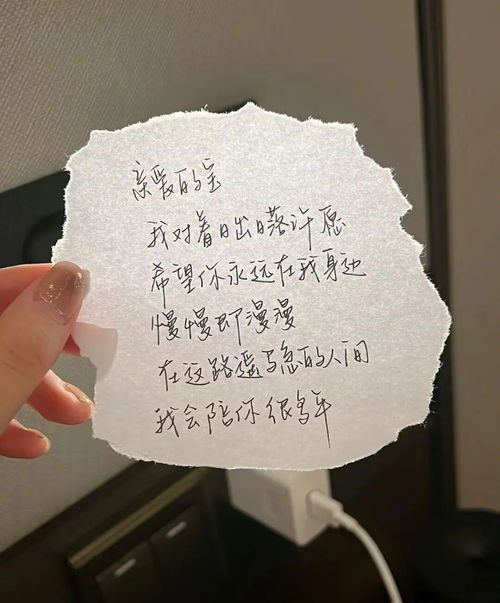 亲爱的宝
我对着日出日落许愿
希望你永远在我身边
慢慢即漫漫
在这路遥马急的人间
我会陪你很多年